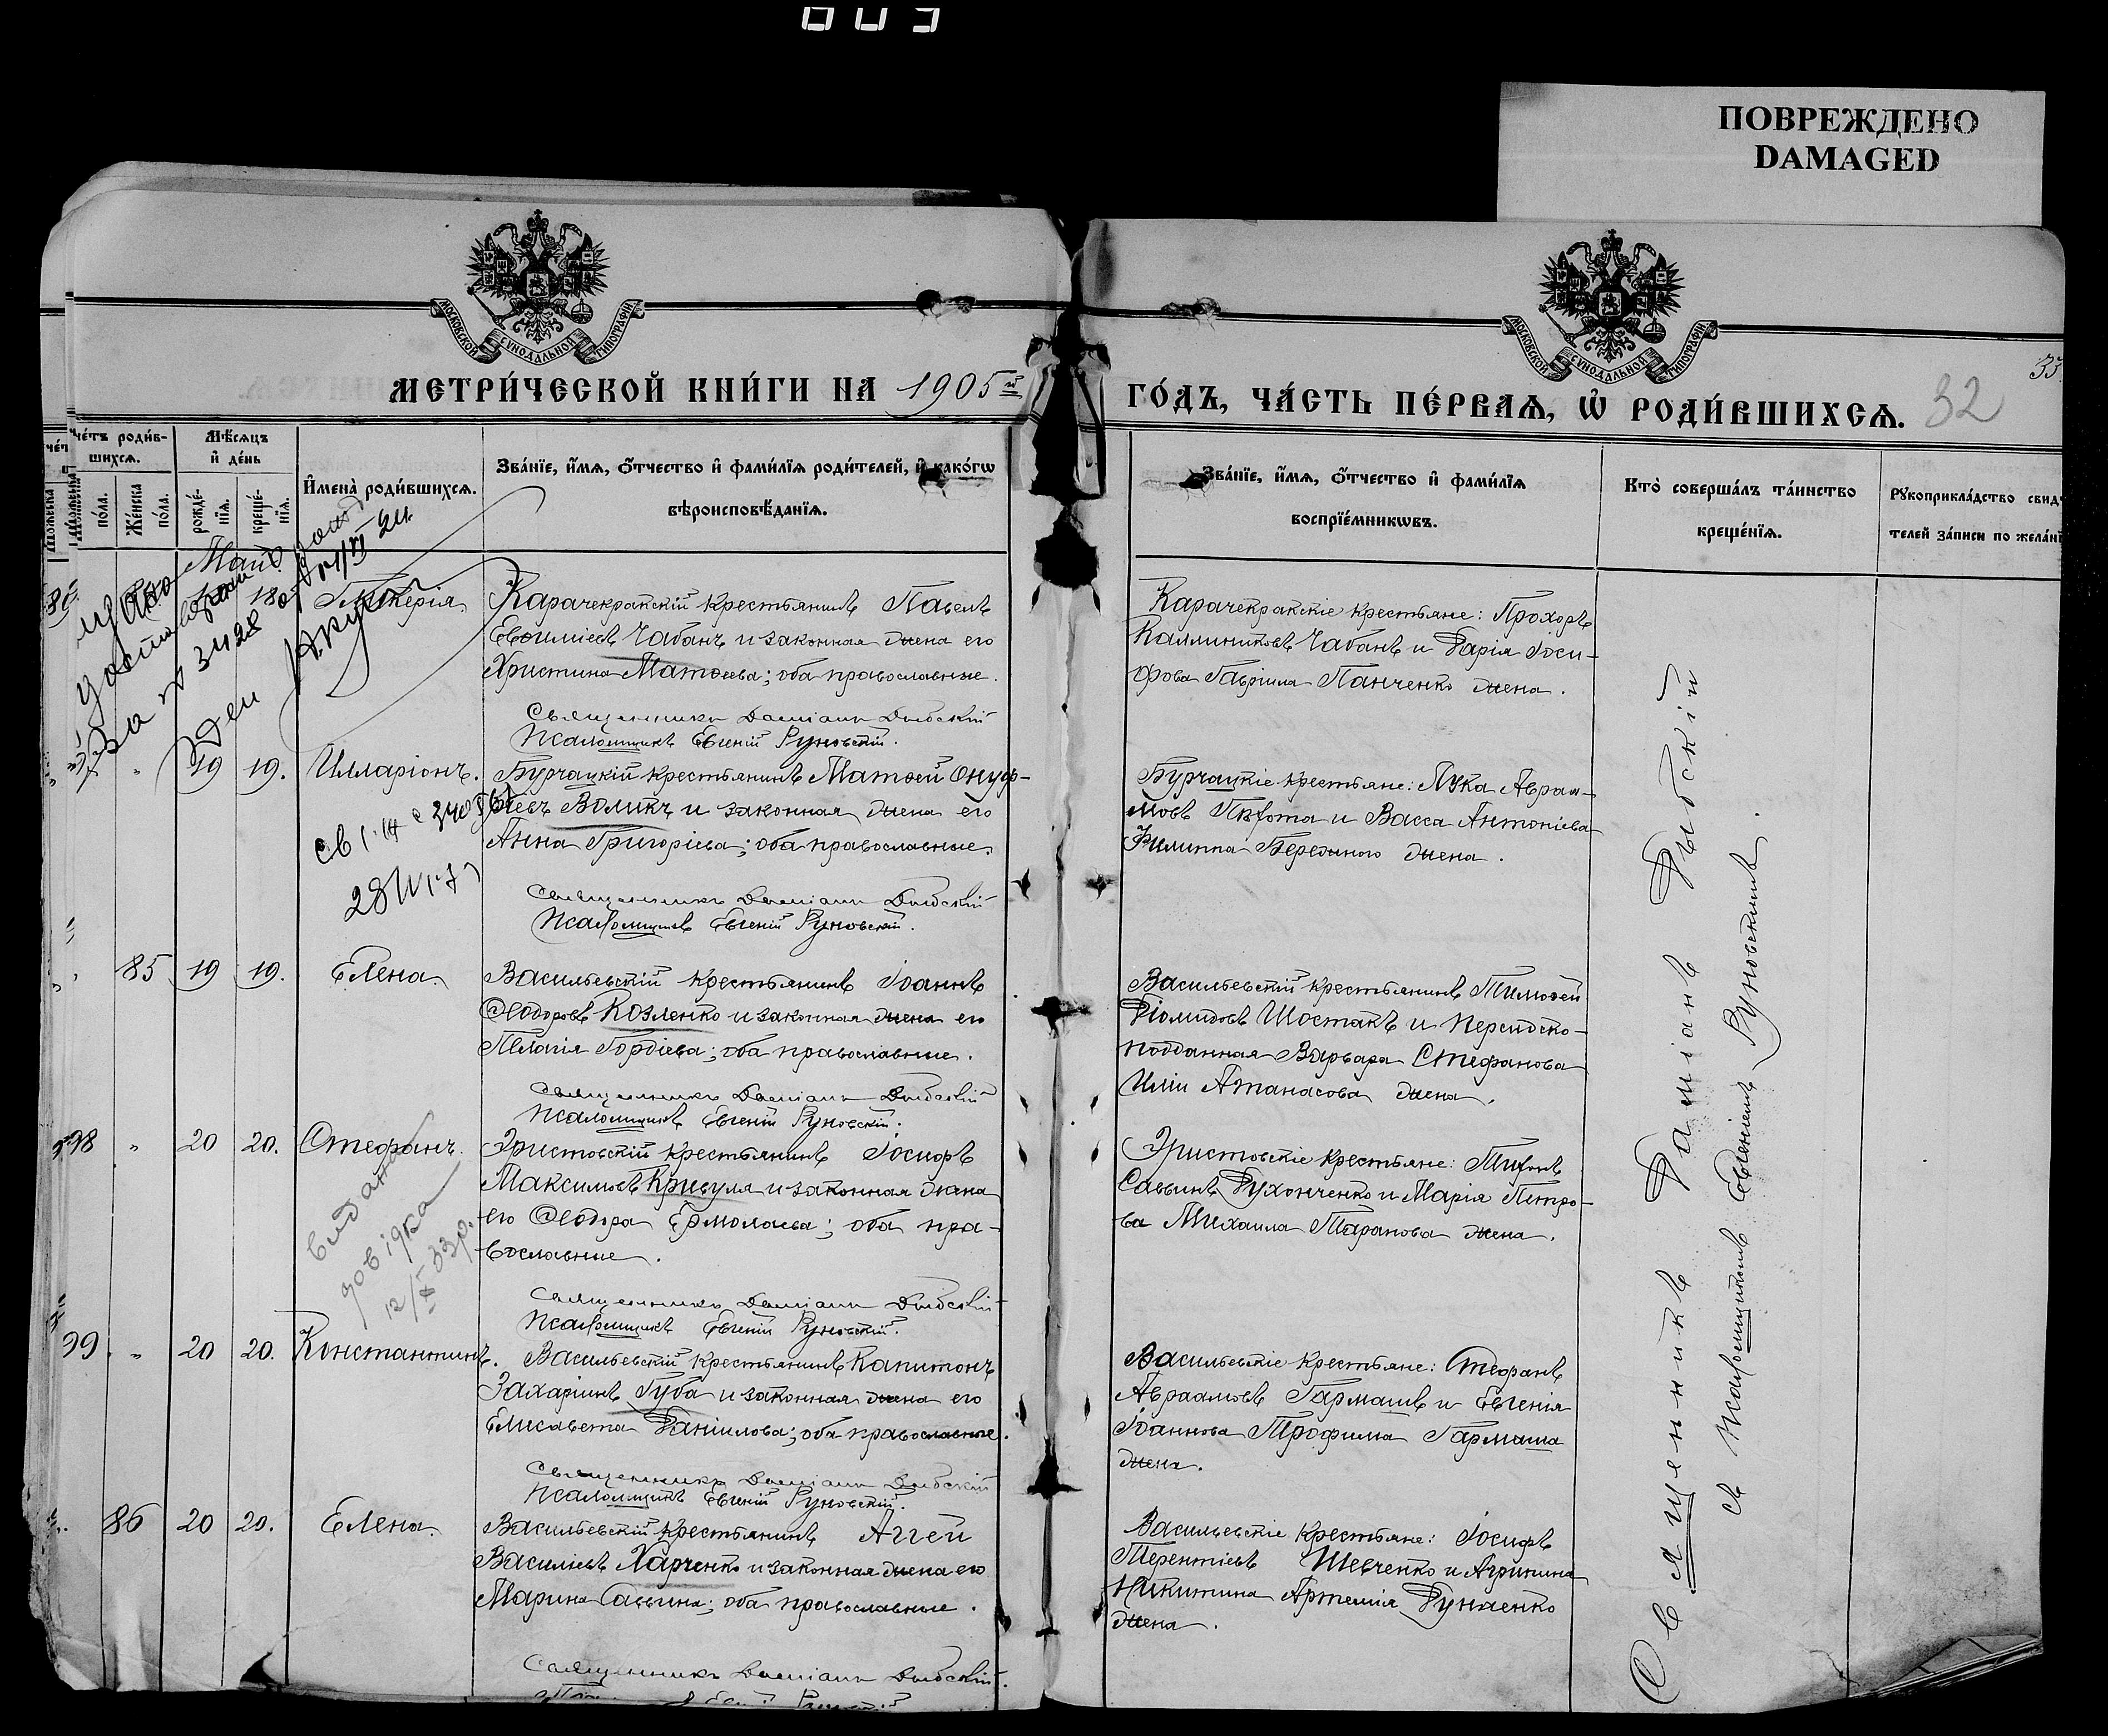 ПОВРЕЖДЕНО
DAMAGED
МОСКОВСКОЙ СѴНОДАЛЬНОЙ ТИПОГРАФІИ
МОСКОВСКОЙ СѴНОДАЛЬНОЙ ТИПОГРАФІИ
33
МЕТРИ́ЧЕСКОЙ КНИ́ГИ НА 1905й
ГО́ДЪ, ЧА́СТЬ ПЕ́РВАѦ, Ѡ҆ РОДИ́ВШИХСѦ. 32
Че́тъ роди́в-
шихсѧ.
Мѣ́сѧцъ
и҆ де́нь
Мꙋ́жеска
по́ла.
Же́нска
по́ла.
рожде́-
нїѧ.
креще́-
нїѧ.
И҆мена̀ роди́вшихсѧ.
Зва́нїе, и҆́мѧ, ѻ҆́тчество и҆ фами́лїѧ роди́телей, и҆ како́гѡ
вѣроисповѣ́данїѧ.
Зва́нїе, и҆́мѧ, ѻ҆́тчество и҆ фами́лїѧ
воспрїе́мникѡвъ.
Кто̀ соверша́лъ та́инство
креще́нїѧ.
Рꙋкоприкла́дство свидѣ́
телей за́писи по жела́нї
Май
18
Гликерія
Карачекракскій крестьянинъ Павелъ
Евѳиміевъ Чабанъ и законная жена его
Христина Матѳеева; оба православные.
Священникъ Даміанъ Дыбскій
Псаломщикъ Евгеній Руновскій.
Карачекракские крестьяне: Прохоръ
Каллиниковъ Чабанъ и Дарія Іоси-
фова Гавріила Панченко жена.
№ 3428
" 19 19. Илларіонъ.
Бурчацкій крестьянинъ Матѳей Онуф-
ріевъ Воликъ и законная жена его
Анна Григоріева; оба православные.
Священникъ Даміанъ Дыбскій
Псаломщикъ Евгеній Руновскій.
Бурчацкіе крестьяне: Лука Авраа-
мовъ Пѣхота и Васса Антоніева
Филиппа Бережного жена.
85 19 19. Елена.
Васильевскій крестьянинъ Іоаннъ
Ѳеодоровъ Козленко и законная жена его
Пелагія Гордіева; оба православные.
Священникъ Даміанъ Дыбскій
Псаломщикъ Евгеній Руновскій.
Васильевскій крестьянинъ Тимоѳей
Діомидовъ Шостакъ и персидско-
подданная Варвара Стефанова
Иліи Атанасова жена.
98 " 20 20. Стефанъ.
видана
довідка
12/X 33р.
Эристовскій крестьянинъ Іосифъ
Максимовъ Кривуля и законная жена
его Ѳеодора Ермолаева; оба пра-
вославные.
Священникъ Даміанъ Дыбскій
Псаломщикъ Евгеній Руновскій.
Эристовскіе крестьяне: Тихонъ
Саввинъ Духонченко и Марія Петро-
ва Михаила Таранова жена.
99. " 20 20. Константинъ.
Васильевскій крестьянинъ Капитонъ
Захаріинъ Губа и законная жена его
Елисавета Даніилова; оба православные.
Священникъ Даміанъ Дыбскій
Псаломщикъ Евгеній Руновскій.
Васильевскіе крестьяне: Стефанъ
Авраамовъ Гармашъ и Евгенія
Іоаннова Трофима Гармаша
жена.
86 20 20. Елена.
Васильевскій крестьянинъ Аггей
Василіевъ Харченко и законная жена его
Марина Саввина; оба православные.
Священникъ Даміанъ Дыбскій.
Васильевскіе крестьяне: Іосифъ
Терентіевъ Шевченко и Агрипина
Никитина Артемія Дунаенко
жена.
Священникъ Даміанъ Дыбскій
съ псаломщикомъ Евгеніемъ Руновскимъ.